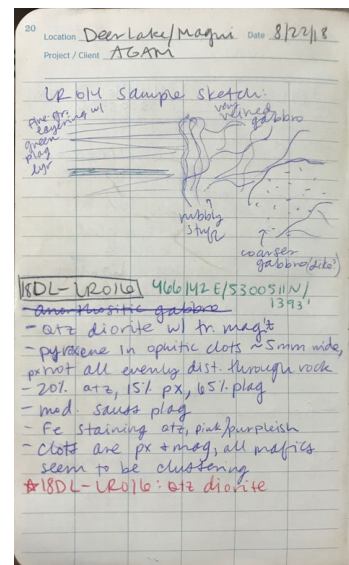 20
Location Deer Lake/Magui Date 8/22/18
Project / Client AGAM
LR014 Sample Sketch:
fine gr.
layering w/
green
plag
lyr
very
veined
gabbro
rubbly
stuff
coarser
gabbro (dike?)
18DL-LR016 466142 E/5300511N/
1393'
anorthositic gabbro
- Qtz diorite w/ tr. mag't
- pyroxene in ophitic clots ~5mm wide,
px not all evenly dist. through rock
- 20% qtz, 15% px, 65% plag
- mod. sauss plag
- Fe staining qtz, pink/purpleish
- Clots are px + mag, all mafics
seem to be clustering
☆18DL-LR016: Qtz diorite